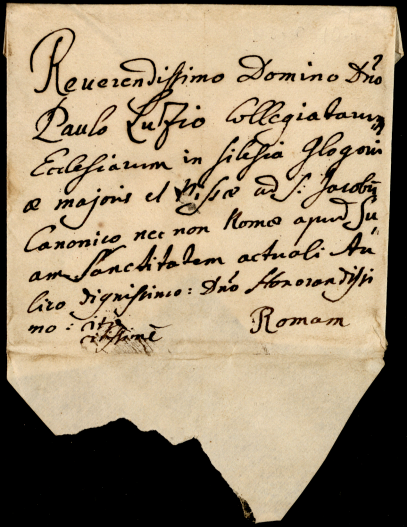 Reuerendissimo Domino Dno
Paulo Lutzio Collegiatarum
Ecclesiarum in Silesia Glogovi
æ majoris et Nissæ ad S: Jacobũ
Canonico nec non Romæ apud Su
am Sanctitatem actuali Au
lico dignissimo: Dno Honorandissi
mo: citò
citissimè Romam